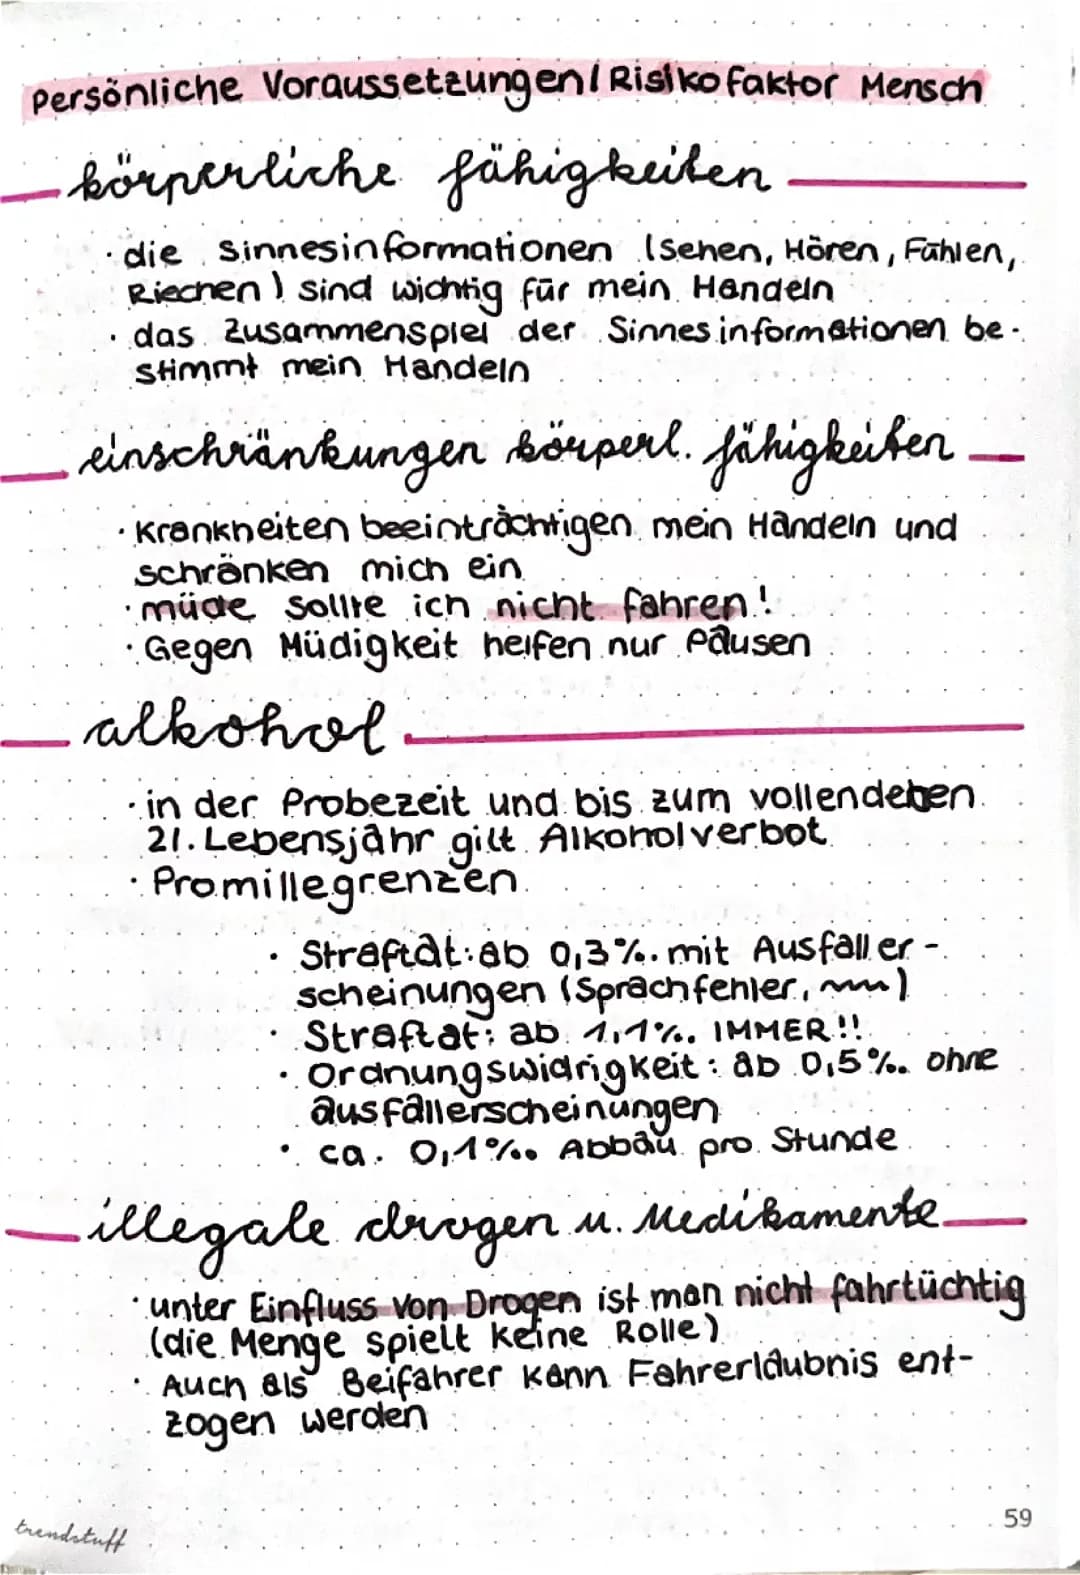 Persönliche Voraussetzungen / Risikofaktor Mensch
körperliche fähigkeiten
· die Sinnesinformationen (Sehen, Hören, Fühlen,
Riechen) sind wichtig für mein Handeln
· das Zusammenspiel der Sinnesinformationen be-
stimmt mein Handeln
einschränkungen körperl. fähigkeiten
· Krankheiten beeinträchtigen mein Handeln und
schränken mich ein
· müde sollte ich nicht fahren!
· Gegen Müdigkeit helfen nur Pausen
alkohol
· in der Probezeit und bis zum vollendeten
21. Lebensjahr gilt Alkoholverbot
· Promillegrenzen
· Straftat: ab 0,3‰ mit Ausfaller-
scheinungen (Sprachfehler, )
· Straftat: ab 1,1‰ IMMER!!
· Ordnungswidrigkeit: ab 0,5‰ ohne
ausfallerscheinungen
· ca. 0,1‰ Abbau pro Stunde
illegale drogen u. Medikamente
· unter Einfluss von Drogen ist man nicht fahrtüchtig
(die Menge spielt keine Rolle)
· Auch als Beifahrer kann Fahrerlaubnis ent-
zogen werden
59
trendstuff